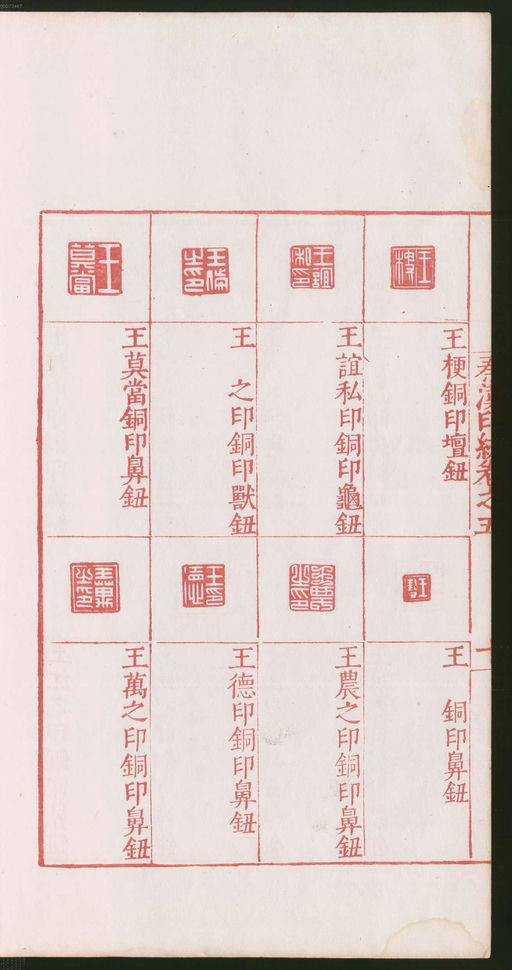 秦漢印統卷之五
王梗銅印壇鈕
王誼私印銅印龜鈕
王　之印銅印獸鈕
王莫當銅印鼻鈕
王　銅印鼻鈕
王農之印銅印鼻鈕
王德印銅印鼻鈕
王萬之印銅印鼻鈕